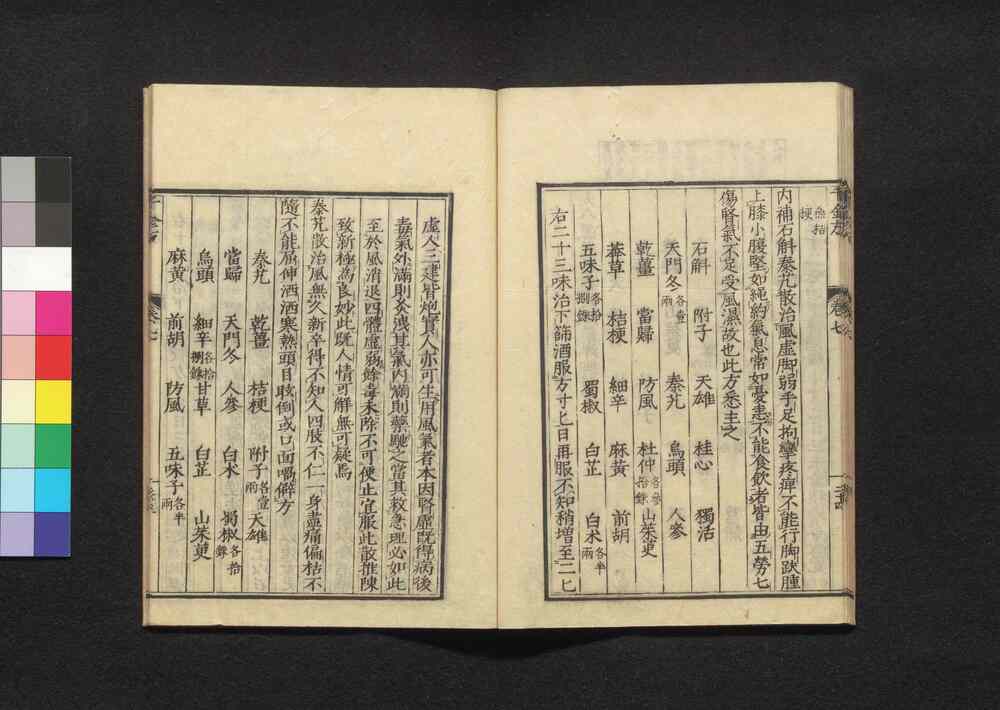 內補石斛秦艽散治風虛脚弱手足拘攣疼痺不能行脚趺腫
上膝小腹堅如繩約氣息常如憂恚不能食飲者皆由五勞七
傷腎氣不足受風濕故也此方悉主之
石斛 附子 天雄 桂心 獨活
天門冬各壹兩 秦艽 烏頭 人參
乾薑 當歸 防風 杜仲各參拾銖 山茱萸
莽草 桔梗 細辛 麻黃 前胡
五味子各拾捌銖 蜀椒 白芷 白朮各半兩
右二十三味治下篩酒服方寸匕日再服不知稍增至二匕
虛人三建皆炮實人亦可生用風氣者本因腎虛既得病後
毒氣外滿則灸洩其氣內滿則藥馳之當其救急理必如此
至於風消退四體虛弱餘毒未除不可便止宜服此散推陳
致新極為良妙此既人情可解無可疑焉
秦艽散治風無久新卒得不知人四肢不仁一身盡痛偏枯不
隨不能屈伸洒洒寒熱頭目眩倒或口面喎僻方
秦艽 乾薑 桔梗 附子各壹兩 天雄
當歸 天門冬 人參 白朮 蜀椒各拾銖
烏頭 細辛各拾捌銖 甘草 白芷 山茱萸
麻黃 前胡 防風 五味子各半兩